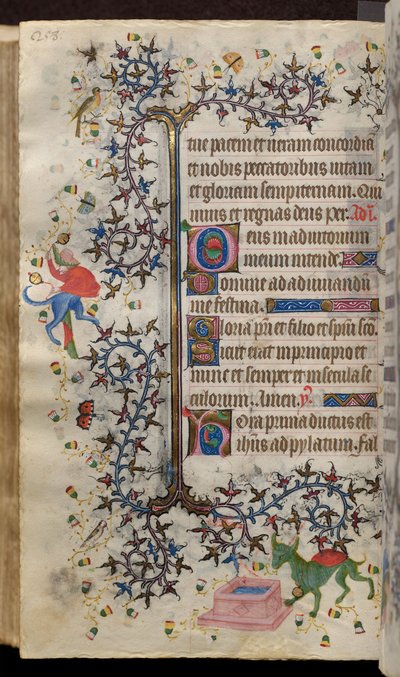 258.
tue pacem et ueram concordia
et nobis peccatoribus uitam
et gloriam sempiternam. Qui
uiuis et regnas deus per. Ad i.
Deus in adiutorium
meum intende.
Domine ad adiuuandu
me festina.
Gloria pri et filio et spui sco.
Sicut erat in principio et
nunc et semper et in secula se
culorum. Amen. y.
Hora prima ductus est
ihus ad pylatum. fal